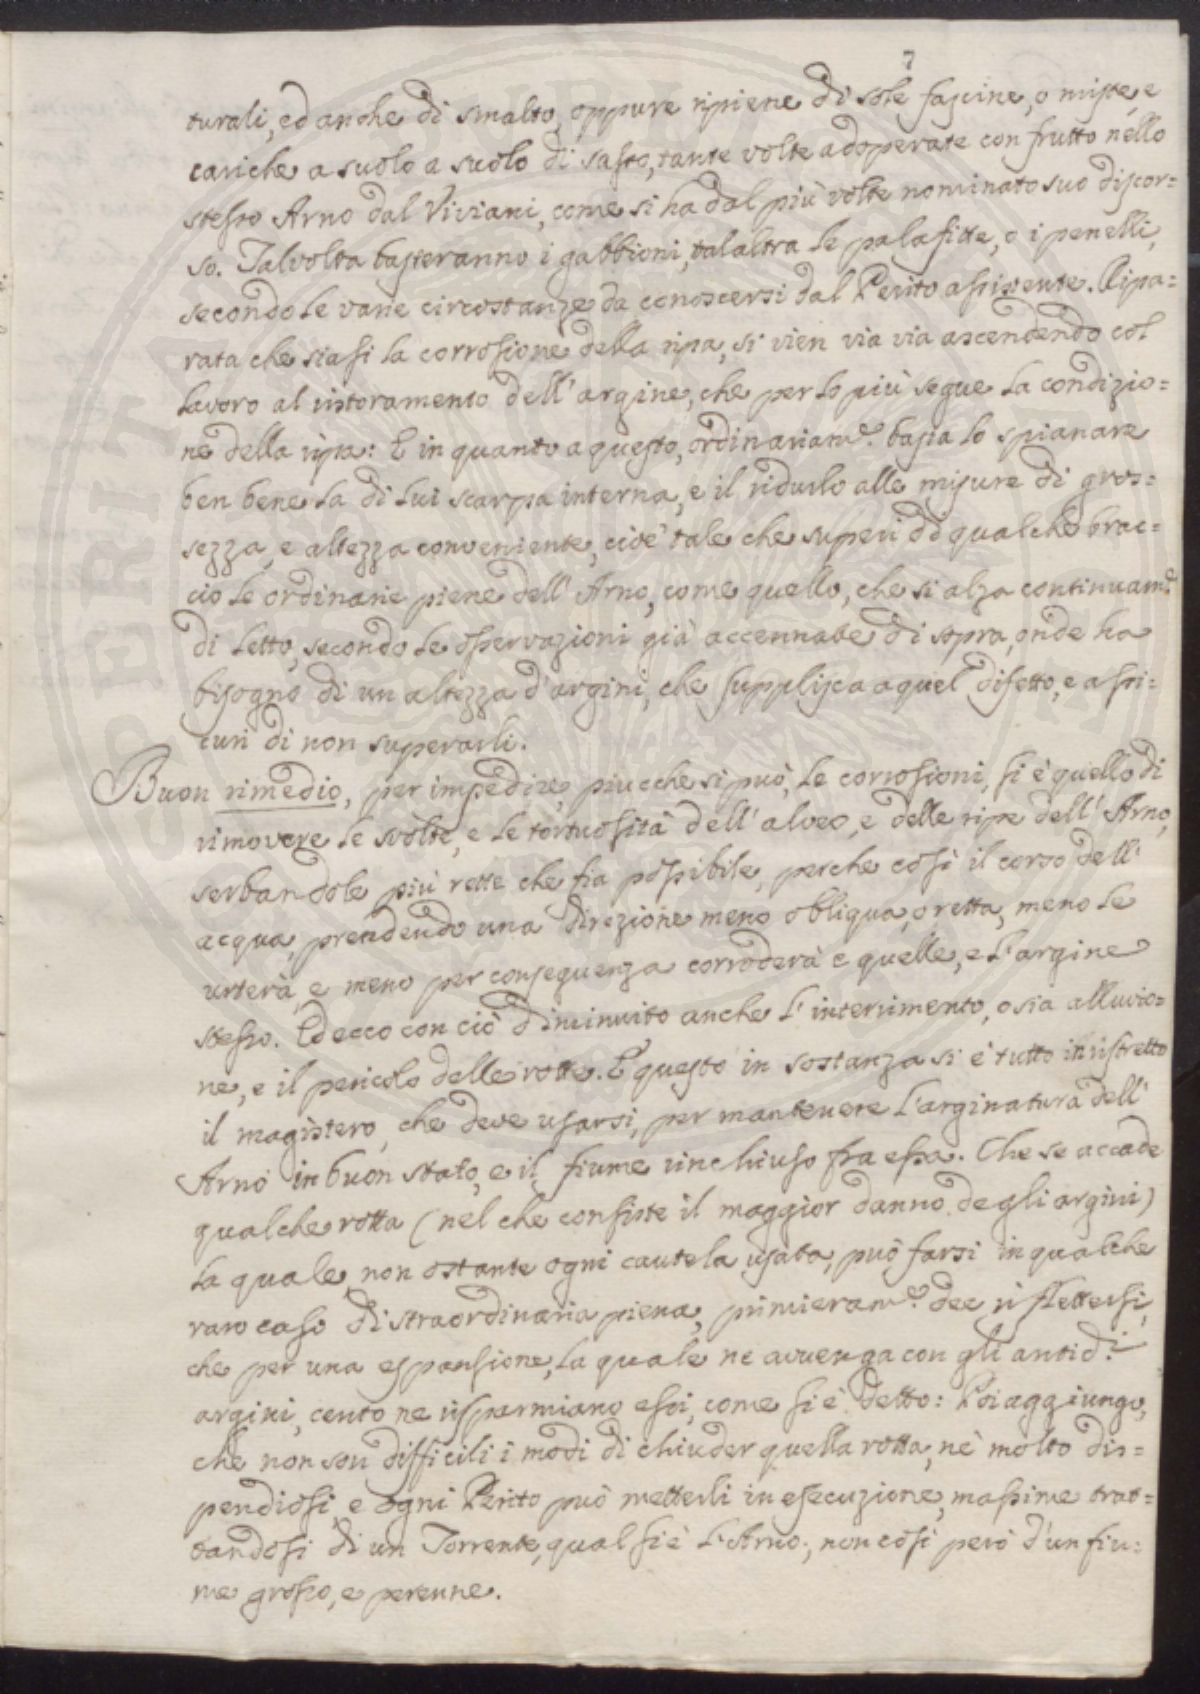 7
turali, ed anche di smalto, oppure ripiene di sole fascine, o miste, e
cariche a suolo a suolo di sasso, tante volte adoperate con frutto nello
stesso Arno dal Viviani, come si ha dal più volte nominato suo discor=
so. Talvolta basteranno i gabbioni, talaltra le palafitte, o i penelli,
secondo le varie circostanze da conoscersi dal Perito assistente. Ripa=
rata che siasi la corrosione della ripa, si vien via via ascendendo col
lavoro al ristoramento dell' argine, che per lo più segue la condizio=
ne della ripa: E in quanto a questo, ordinariam.e basta lo spianare
ben bene la di lui scarpa interna, e il ridurlo alle misure di gros=
sezza, e altezza conveniente, cioè tale che superi di qualche brac=
cio le ordinarie piene dell' Arno, come quello, che si alza continuam.e
di letto, secondo le osservazioni già accennate di sopra, onde ha
bisogno di un altezza d'argini, che supplisca a quel difetto, e assi=
curi di non superarli.
Buon rimedio, per impedire, piucche si può, le corrosioni, si è quello di
rimovere le svolte, e le tortuosità dell' alveo, e delle ripe dell' Arno,
serbandole più rette che sia possibile, perche così il corso dell'
acqua, prendendo una direzione meno obliqua, o retta, meno le
urterà, e meno per conseguenza corroderà e quelle, e l'argine
stesso. Ed ecco con ciò diminuito anche l' interrimento, o sia alluvio=
ne, e il pericolo delle rotte. E questo in sostanza si è tutto in ristretto
il magistero, che deve usarsi, per mantenere l'arginatura dell'
Arno in buon stato, e il fiume rinchiuso fra essa. Che se accade
qualche rotta (nel che consiste il maggior danno degli argini)
la quale, non ostante ogni cautela usata, può farsi in qualche
raro caso di straordinaria piena, primieram.e dee riflettersi,
che per una espansione, la quale ne avvenga con gli antid.i
argini, cento ne risparmiano essi, come si è detto: Poi aggiungo,
che non son difficili i modi di chiuder quella rotta, nè molto dis=
pendiosi, e ogni Perito può metterli in esecuzione, massime trat=
tandosi di un Torrente, qual si è l'Arno; non così però d'un fiu=
me grosso, e perenne.